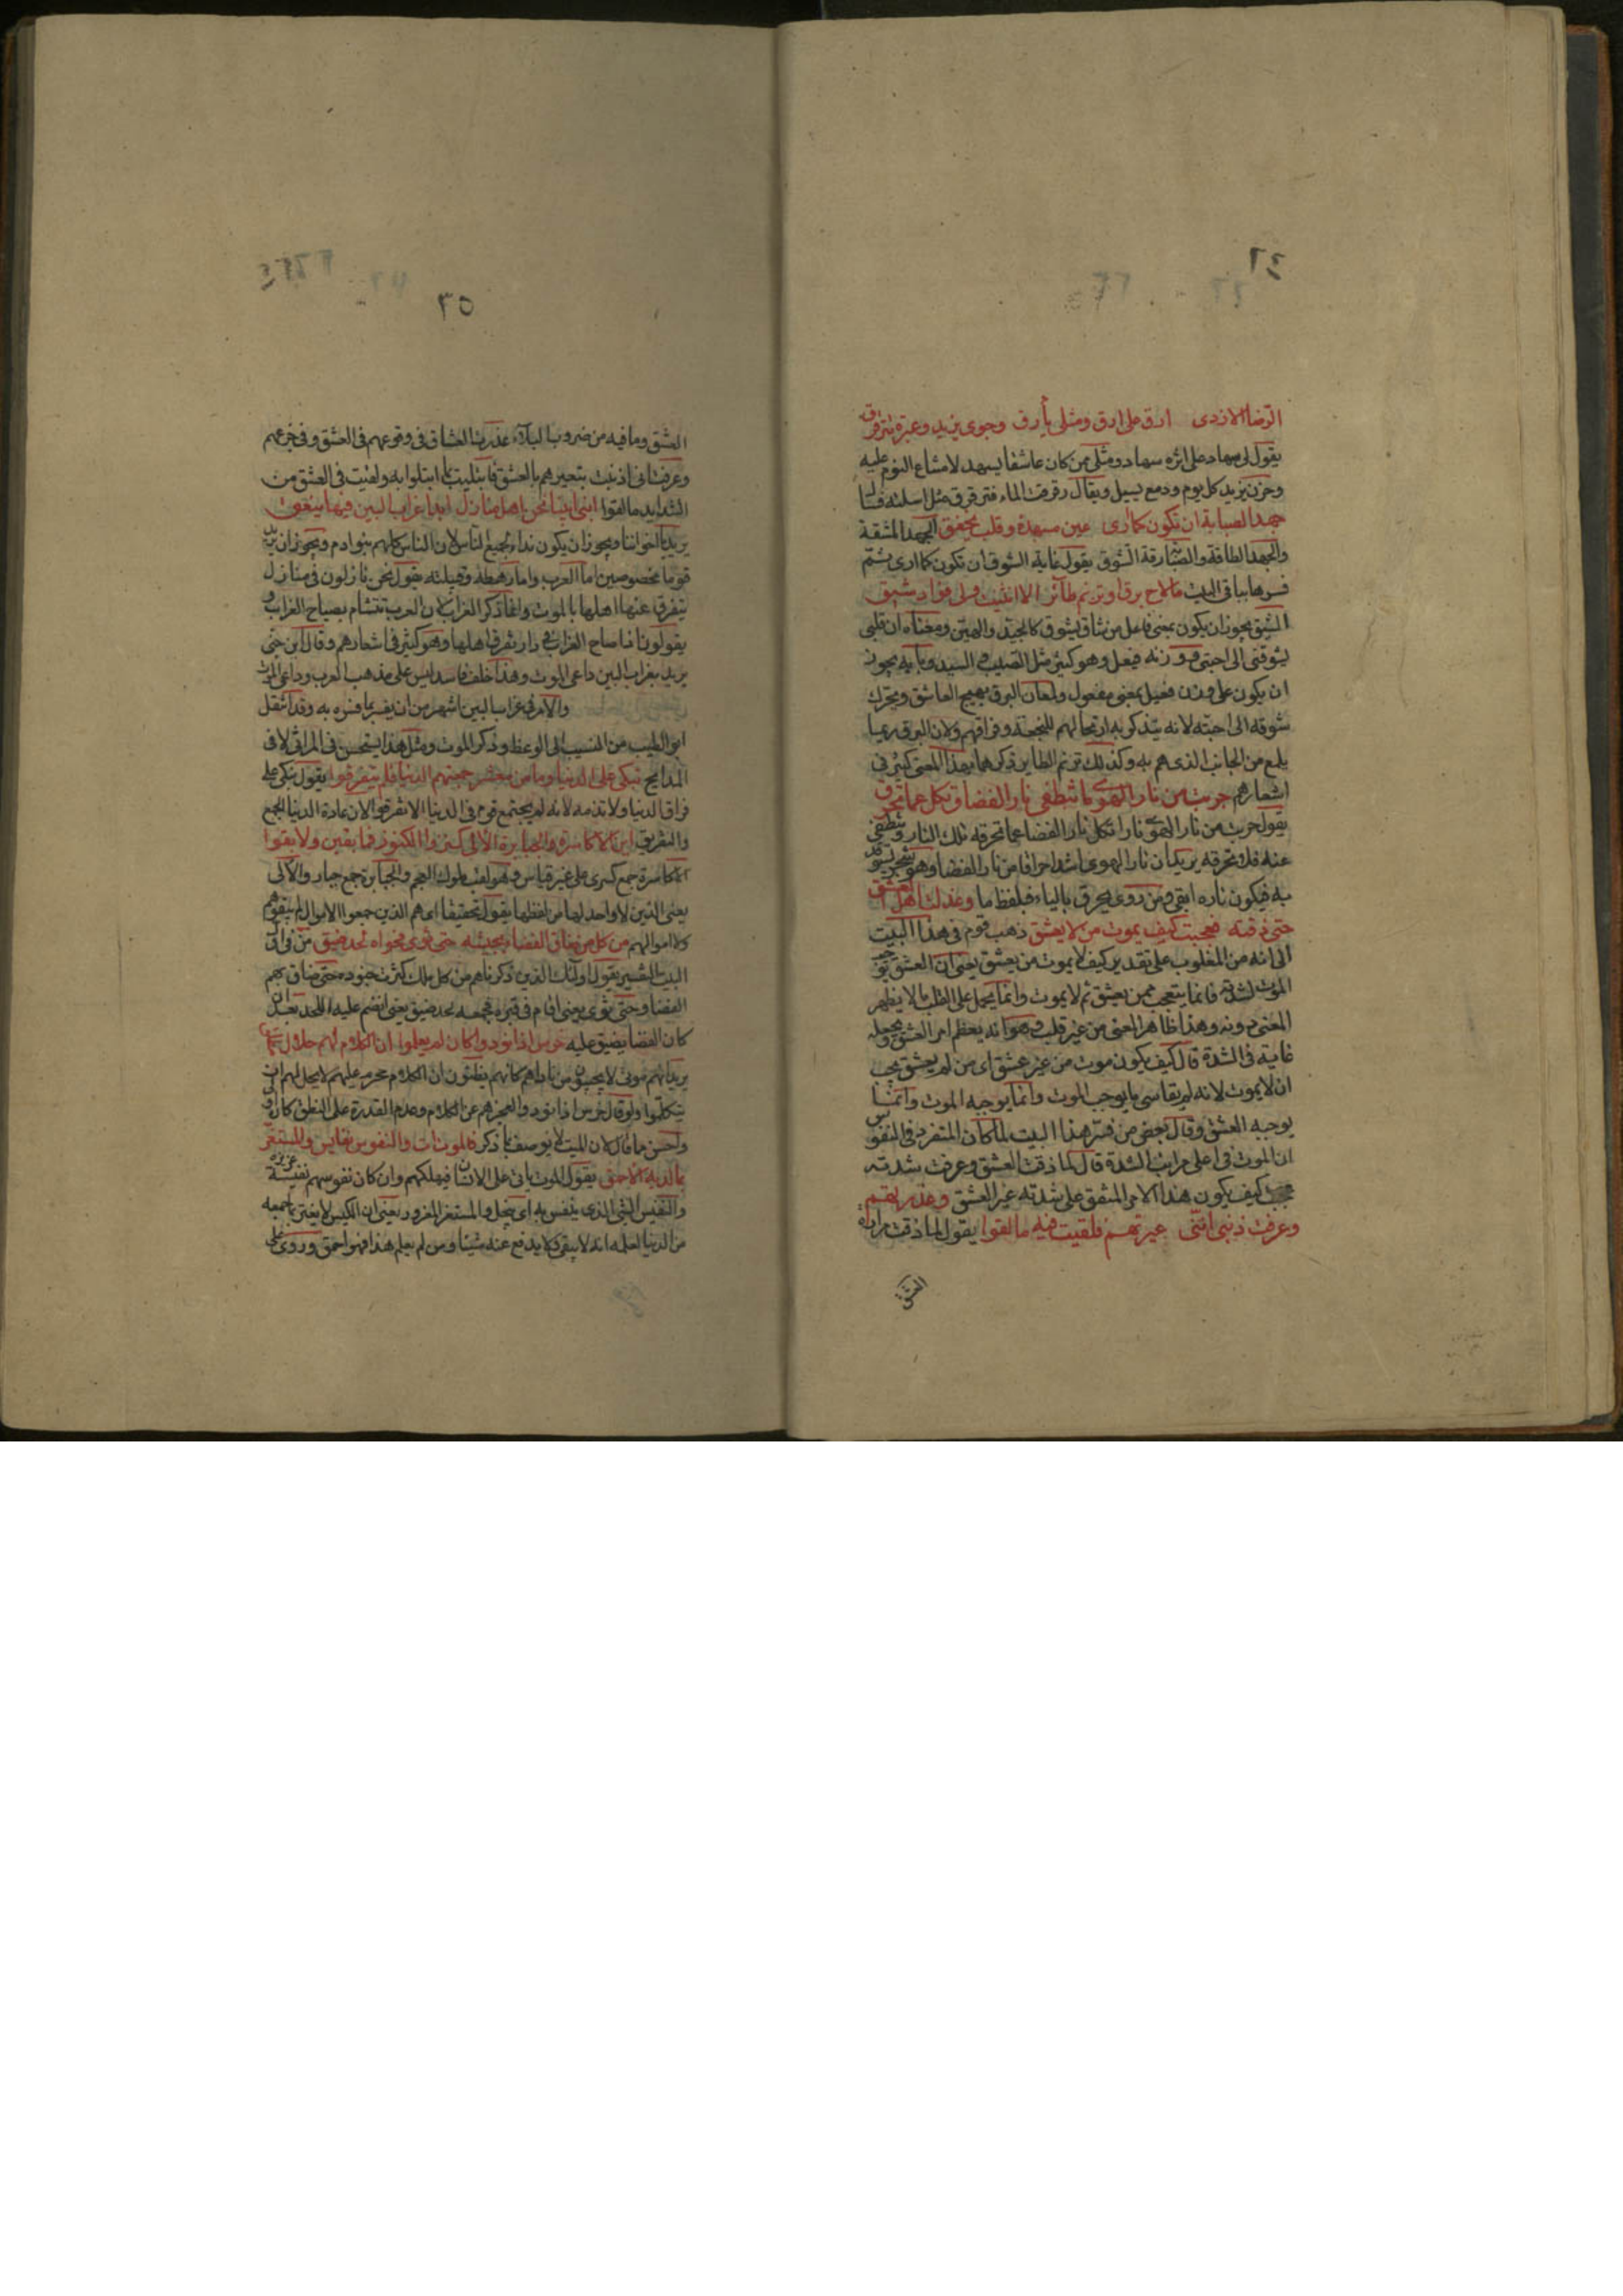 ٤٦
الرضا الازدى ارق على ارق ومثلى يأرق وجوى يزيد وعبرة تترقرق
يقول لى سهاد على اثره سهاد ومثلى ممن كان عاشقا يسهد لامتناع النوم عليه
وحزن يزيد كل يوم ودمع يسيل ويقال رقرقت الماء فترقرق مثل اسلته فسال
جهد الصبابة ان تكون كما ارى عين مسهدة وقلب يخفق الجهد المشقة
والجهد الطاقة والصبابة رقة الشوق يقول غاية الشوق ان تكون كما ارى ثم
فسرها بباقى البيت ما لاح برق او ترنم طائر الا انثنيت ولى فؤاد شيق
الشيق يجوز ان يكون بمعنى فاعل من شاق يشوق كالجيد والهين ومعناه ان قلبى
يشوقنى الى احبتى ووزنه فيعل وهو كثير مثل الصيب والسيد وبابه يجوز
ان يكون على وزن فعيل بمعنى مفعول ولمعان البرق يهيج العاشق ويحرك
شوقه الى احبته لانه يتذكر به ارتحالهم للنجعة وفراقهم ولان البرق ربما
يلمع من الجانب الذى هم به وكذلك ترنم الطاير ذكرهما بهذا المعنى كثير فى
اشعارهم جربت من نار الهوى ما تنطفى نار الغضا وتكل عما تحرق
يقول جربت من نار الهوى نارا تكل نار الغضا عما تحرقه تلك النار وتنطفى
عنه فلا تحرقه يريد ان نار الهوى اشد احراقا من نار الغضا وهو شجر يستوقد
به فيكون ناره ابقى ومن روى يحرق بالياء فلفظ ما وعذلت اهل العشق
حتى ذقته فعجبت كيف يموت من لا يعشق ذهب قوم فى هذا البيت
الى انه من المقلوب على تقدير كيف لا يموت من يعشق يعنى ان العشق يوجب
الموت لشدته فانما يتعجب ممن يعشق ثم لا يموت وانما يحمل على القلب ما لا يظهر
المعنى دونه وهذا ظاهر المعنى من غير قلب وهو انه يعظم امر العشق ويجعله
غاية فى الشدة قال كيف يكون موت من غير عشق اى من لم يعشق يجب
ان لا يموت لانه لم يقاسى ما يوجب الموت وانما يوجبه الموت وانما
يوجبه العشق وقال بعض من فسر هذا البيت لما كان المتفرد فى النفوس
ان الموت فى اعلى مراتب الشدة قال لما ذقت العشق وعرفت شدته
عجبت كيف يكون هذا الامر المتفق على شدته غير العشق وعذرتهم
وعرفت ذنبى اننى عيرتهم فلقيت فيه ما لقوا يقول لما ذقت مرارة
العشق
٣٥
العشق وما فيه من ضروب البلاء عذرت العشاق فى وقوعهم فى العشق وفى جزعهم
وعرفت انى اذنبت بتعييرهم بالعشق فابتليت بما ابتلوا به ولقيت فى العشق من
الشدايد ما لقوا ابنى ابينا نحن اهل منازل ابدا غراب البين فيها ينعق
يريد يا اخواننا ويجوز ان يكون نداء لجميع الناس لان الناس كلهم بنو ادم ويجوز ان يريد
قوما مخصوصين اما العرب واما رهطه وقبيلته يقول نحن نازلون فى منازل
يتفرق عنها اهلها بالموت وانما ذكر الغراب لان العرب تتشام بصياح الغراب و
يقولون اذا صاح الغراب فى دار تفرق اهلها وهو كثير فى اشعارهم وقال ابن جنى
يريد بغراب البين داعى الموت وهذا خلف فاسد ليس على مذهب العرب وداعى الموت
والامر فى غراب البين اشهر من ان يفسر بما فسره به وقد انتقل
ابو الطيب من النسيب الى الوعظ وذكر الموت ومثل هذا يستحسن فى المراثى لا فى
المدايح نبكى على الدنيا وما من معشر جمعتهم الدنيا فلم يتفرقوا يقول نبكى على
فراق الدنيا ولا تذمه لانه لم يجتمع قوم فى الدنيا الا تفرقوا لان عادة الدنيا الجمع
والتفريق اين الاكاسرة والجبابرة الالى كنزوا الكنوز فما بقين ولا بقوا
الاكاسرة جمع كسرى على غير قياس وهو لقب ملوك العجم والجبابرة جمع جبار والالى
يعنى الذين لا واحد لها من لفظها يقول تحقيقا اى هم الذين جمعوا الاموال لم يبقوا هم
ولا اموالهم من كل من ضاق الفضاء بجيشه حتى ثوى فحواه لحد ضيق من فى اول
البيت للتفسير يقول اولئك الذين ذكرناهم من كل ملك كثرت جنوده حتى ضاق بهم
الفضا وحتى ثوى يعنى اقام فى قبره فجمعه لحد ضيق يعنى انضم عليه اللحد بعد ان
كان الفضا يضيق عليه خرس اذا نودوا كان لم يعلموا ان الكلام لهم حلال مطلق
يريد انهم موتى لا يجيبون من ناداهم كانهم يظنون ان الكلام محرم عليهم لا يحل لهم ان
يتكلموا ولو قال خرس اذا نودوا لعجزهم عن الكلام وعدم القدرة على النطق كان اولى
واحسن مما قال لان الميت لا يوصف بما ذكر فالموت ات والنفوس نفايس والمستغر
بما لديه الاحمق يقول الموت ياتى على الانسان فيهلكهم وان كان نفوسهم نفيسة عزيزة
والنفيس الشى الذى ينفس به اى يبخل والمستغر المغرور يعنى ان الكيس لا يغتر بما جمعه
من الدنيا لعلمه انه لا يبقى ولا يدفع عنه شيئا ومن لم يعلم هذا فهو احمق وروى على